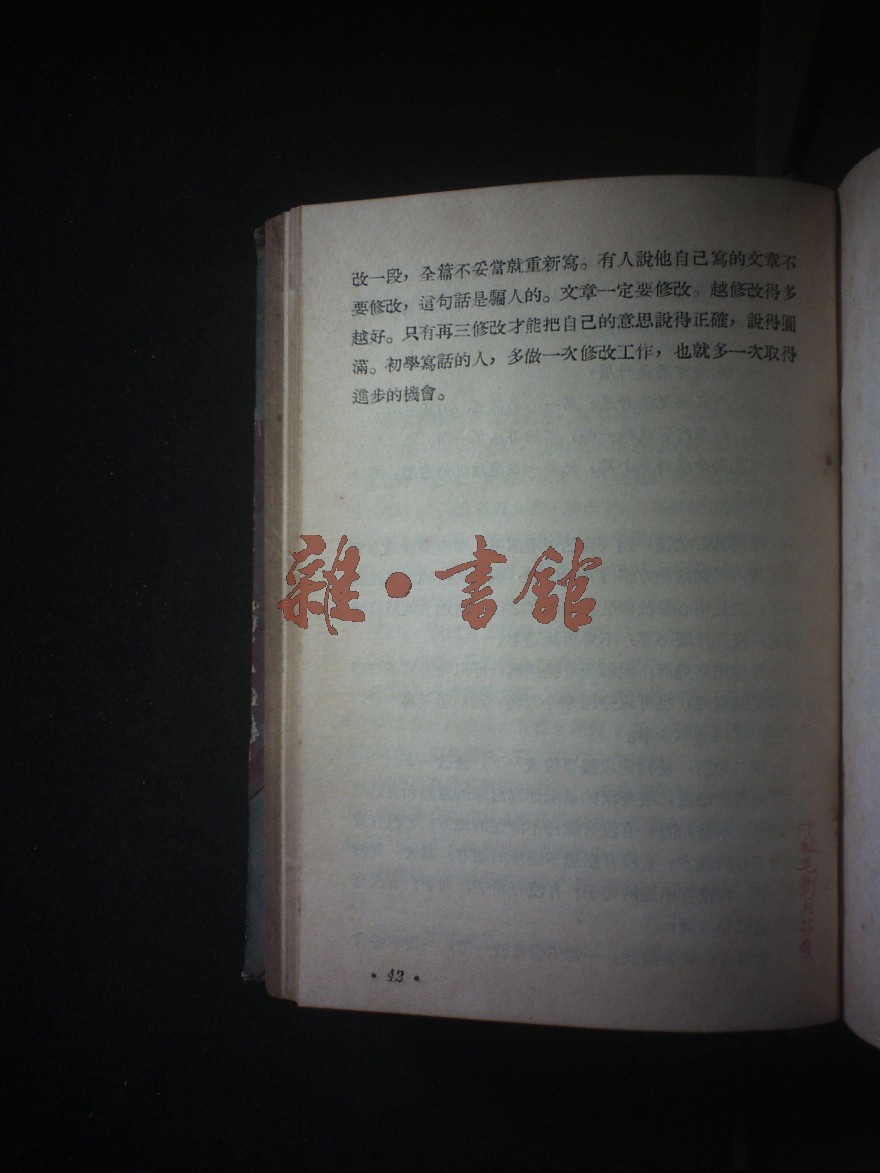 改一段，全篇不妥當就重新寫。有人說他自己寫的文章不
要修改，這句話是騙人的。文章一定要修改。越修改得多
越好。只有再三修改才能把自己的意思說得正確，說得圓
滿。初學寫話的人，多做一次修改工作，也就多一次取得
進步的機會。
雜·書館
• 42 •